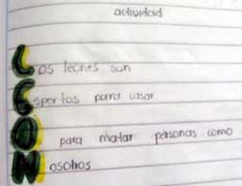 actividad
Los leones son
Espertos para usar
O para matar personas como
Nosotros